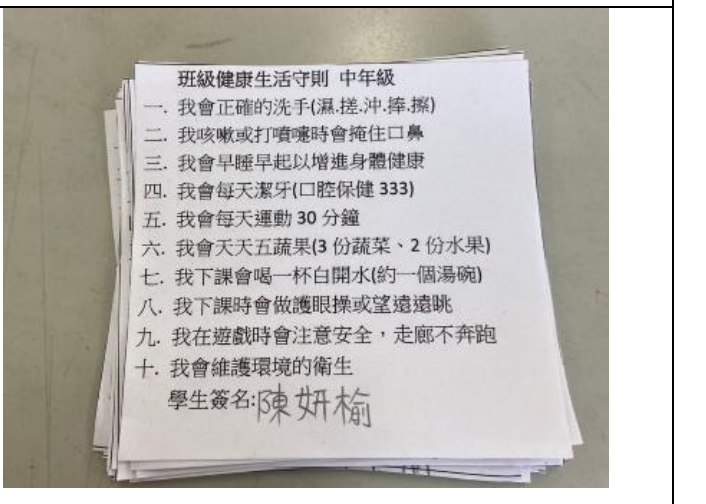 班級健康生活守則 中年級
一. 我會正確的洗手(濕.搓.沖.捧.擦)
二. 我咳嗽或打噴嚏時會掩住口鼻
三. 我會早睡早起以增進身體健康
四. 我會每天潔牙(口腔保健 333)
五. 我會每天運動 30 分鐘
六. 我會天天五蔬果(3 份蔬菜、2 份水果)
七. 我下課會喝一杯白開水(約一個湯碗)
八. 我下課時會做護眼操或望遠遠眺
九. 我在遊戲時會注意安全，走廊不奔跑
十. 我會維護環境的衛生
學生簽名:陳妍榆